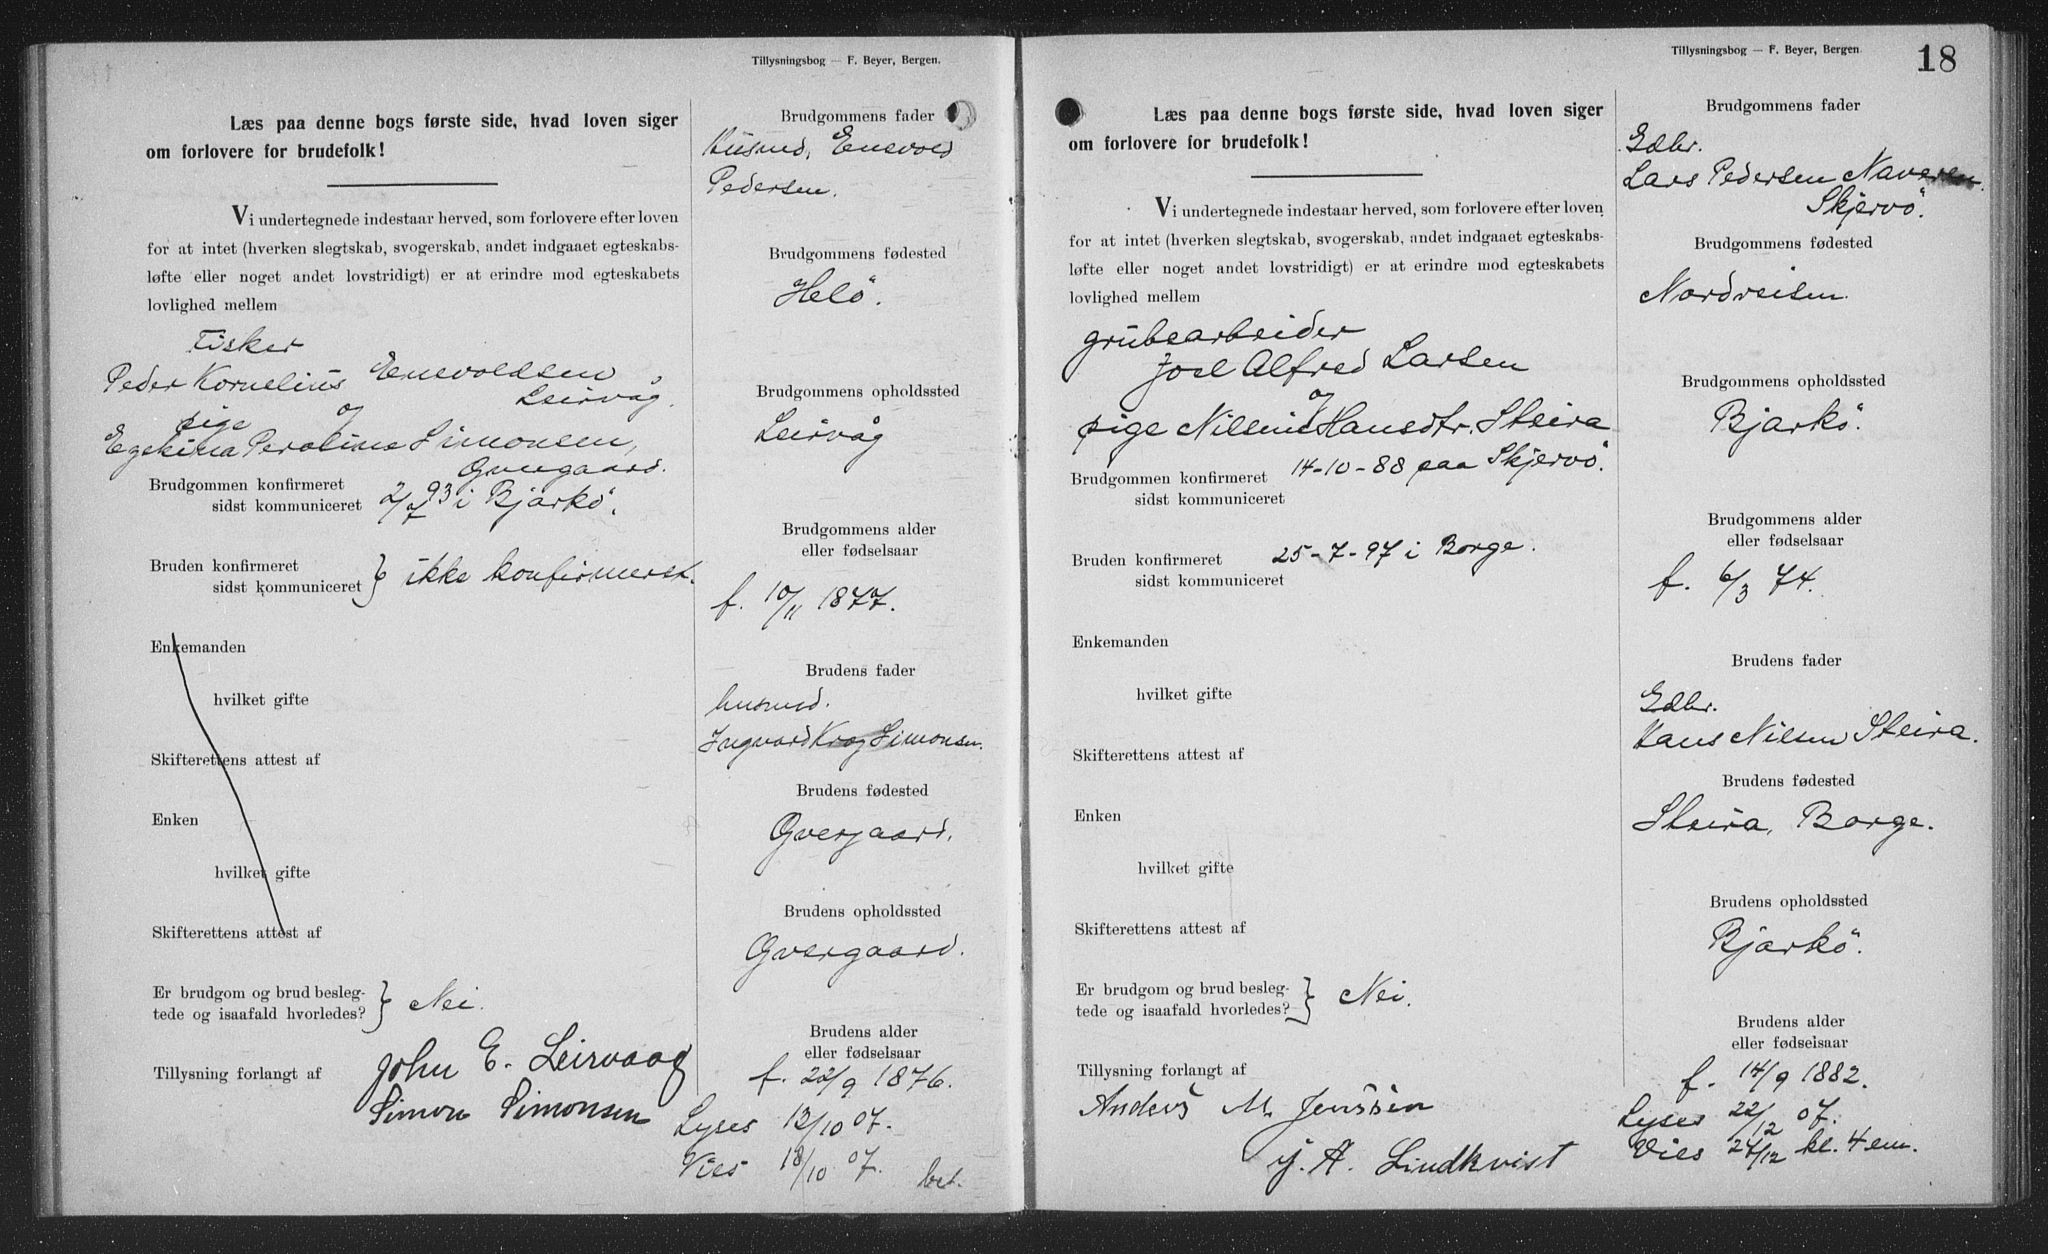 Tillysningsbog — F. Beyer, Bergen.
Læs paa denne bogs første side, hvad loven siger
om forlovere for brudefolk!
Vi undertegnede indestaar herved, som forlovere efter loven
for at intet (hverken slegtskab, svogerskab, andet indgaaet egteskabs-
løfte eller noget andet lovstridigt) er at erindre mod egteskabets
lovlighed mellem
Fisker
Peder Kornelius Enevoldsen
Leirvåg.
og
pige
Perolina Simonsen,
Brudgommen konfirmeret
sidst kommuniceret 2/7 93 i Bjarkö.
Bruden konfirmeret
sidst kommuniceret } ikke konfirmeret.
Enkemanden
hvilket gifte
Skifterettens attest af
Enken
hvilket gifte
Skifterettens attest af
Er brudgom og brud besleg-
tede og isaafald hvorledes? } Nei.
Tillysning forlangt af John E. Leirvaag
Simon Simonsen
Brudgommens fader
Husmd. Enevold
Pedersen.
Brudgommens fødested
Helö.
Brudgommens opholdssted
Leirvåg
Brudgommens alder
eller fødselsaar
f. 10/11 1877.
Brudens fader
husmd.
Ingvard Krog Simonsen.
Brudens fødested
Qvergaard.
Brudens opholdssted
Qvergaard.
Brudens alder
eller fødselsaar
f. 22/9 1876.
Lyses 13/10 07.
Vies 18/10 07. bet.
Tillysningsbog — F. Beyer, Bergen.
18
Læs paa denne bogs første side, hvad loven siger
om forlovere for brudefolk!
Vi undertegnede indestaar herved, som forlovere efter loven
for at intet (hverken slegtskab, svogerskab, andet indgaaet egteskabs-
løfte eller noget andet lovstridigt) er at erindre mod egteskabets
lovlighed mellem
grubearbeider
Joel Alfred Larsen
og
pige Nilsine Hansdtr. Steira
Brudgommen konfirmeret 14-10-88 paa Skjervö.
sidst kommuniceret
Bruden konfirmeret 25-7-97 i Borge.
sidst kommuniceret
Enkemanden
hvilket gifte
Skifterettens attest af
Enken
hvilket gifte
Skifterettens attest af
Er brudgom og brud besleg-
tede og isaafald hvorledes? } Nei.
Tillysning forlangt af
Anders M. Jenssen
J. A. Lindkvist
Brudgommens fader
Gdbr.
Lars Pedersen Naveren
Skjervö.
Brudgommens fødested
Nordreisen.
Brudgommens opholdssted
Bjarkö.
Brudgommens alder
eller fødselsaar
f. 6/3 74.
Brudens fader
Gdbr.
Hans Nilsen Steira.
Brudens fødested
Steira, Borge.
Brudens opholdssted
Bjarkö.
Brudens alder
eller fødselsaar
f. 14/9 1882.
Lyses 22/12 07.
Vies 24/12 kl. 4 em.